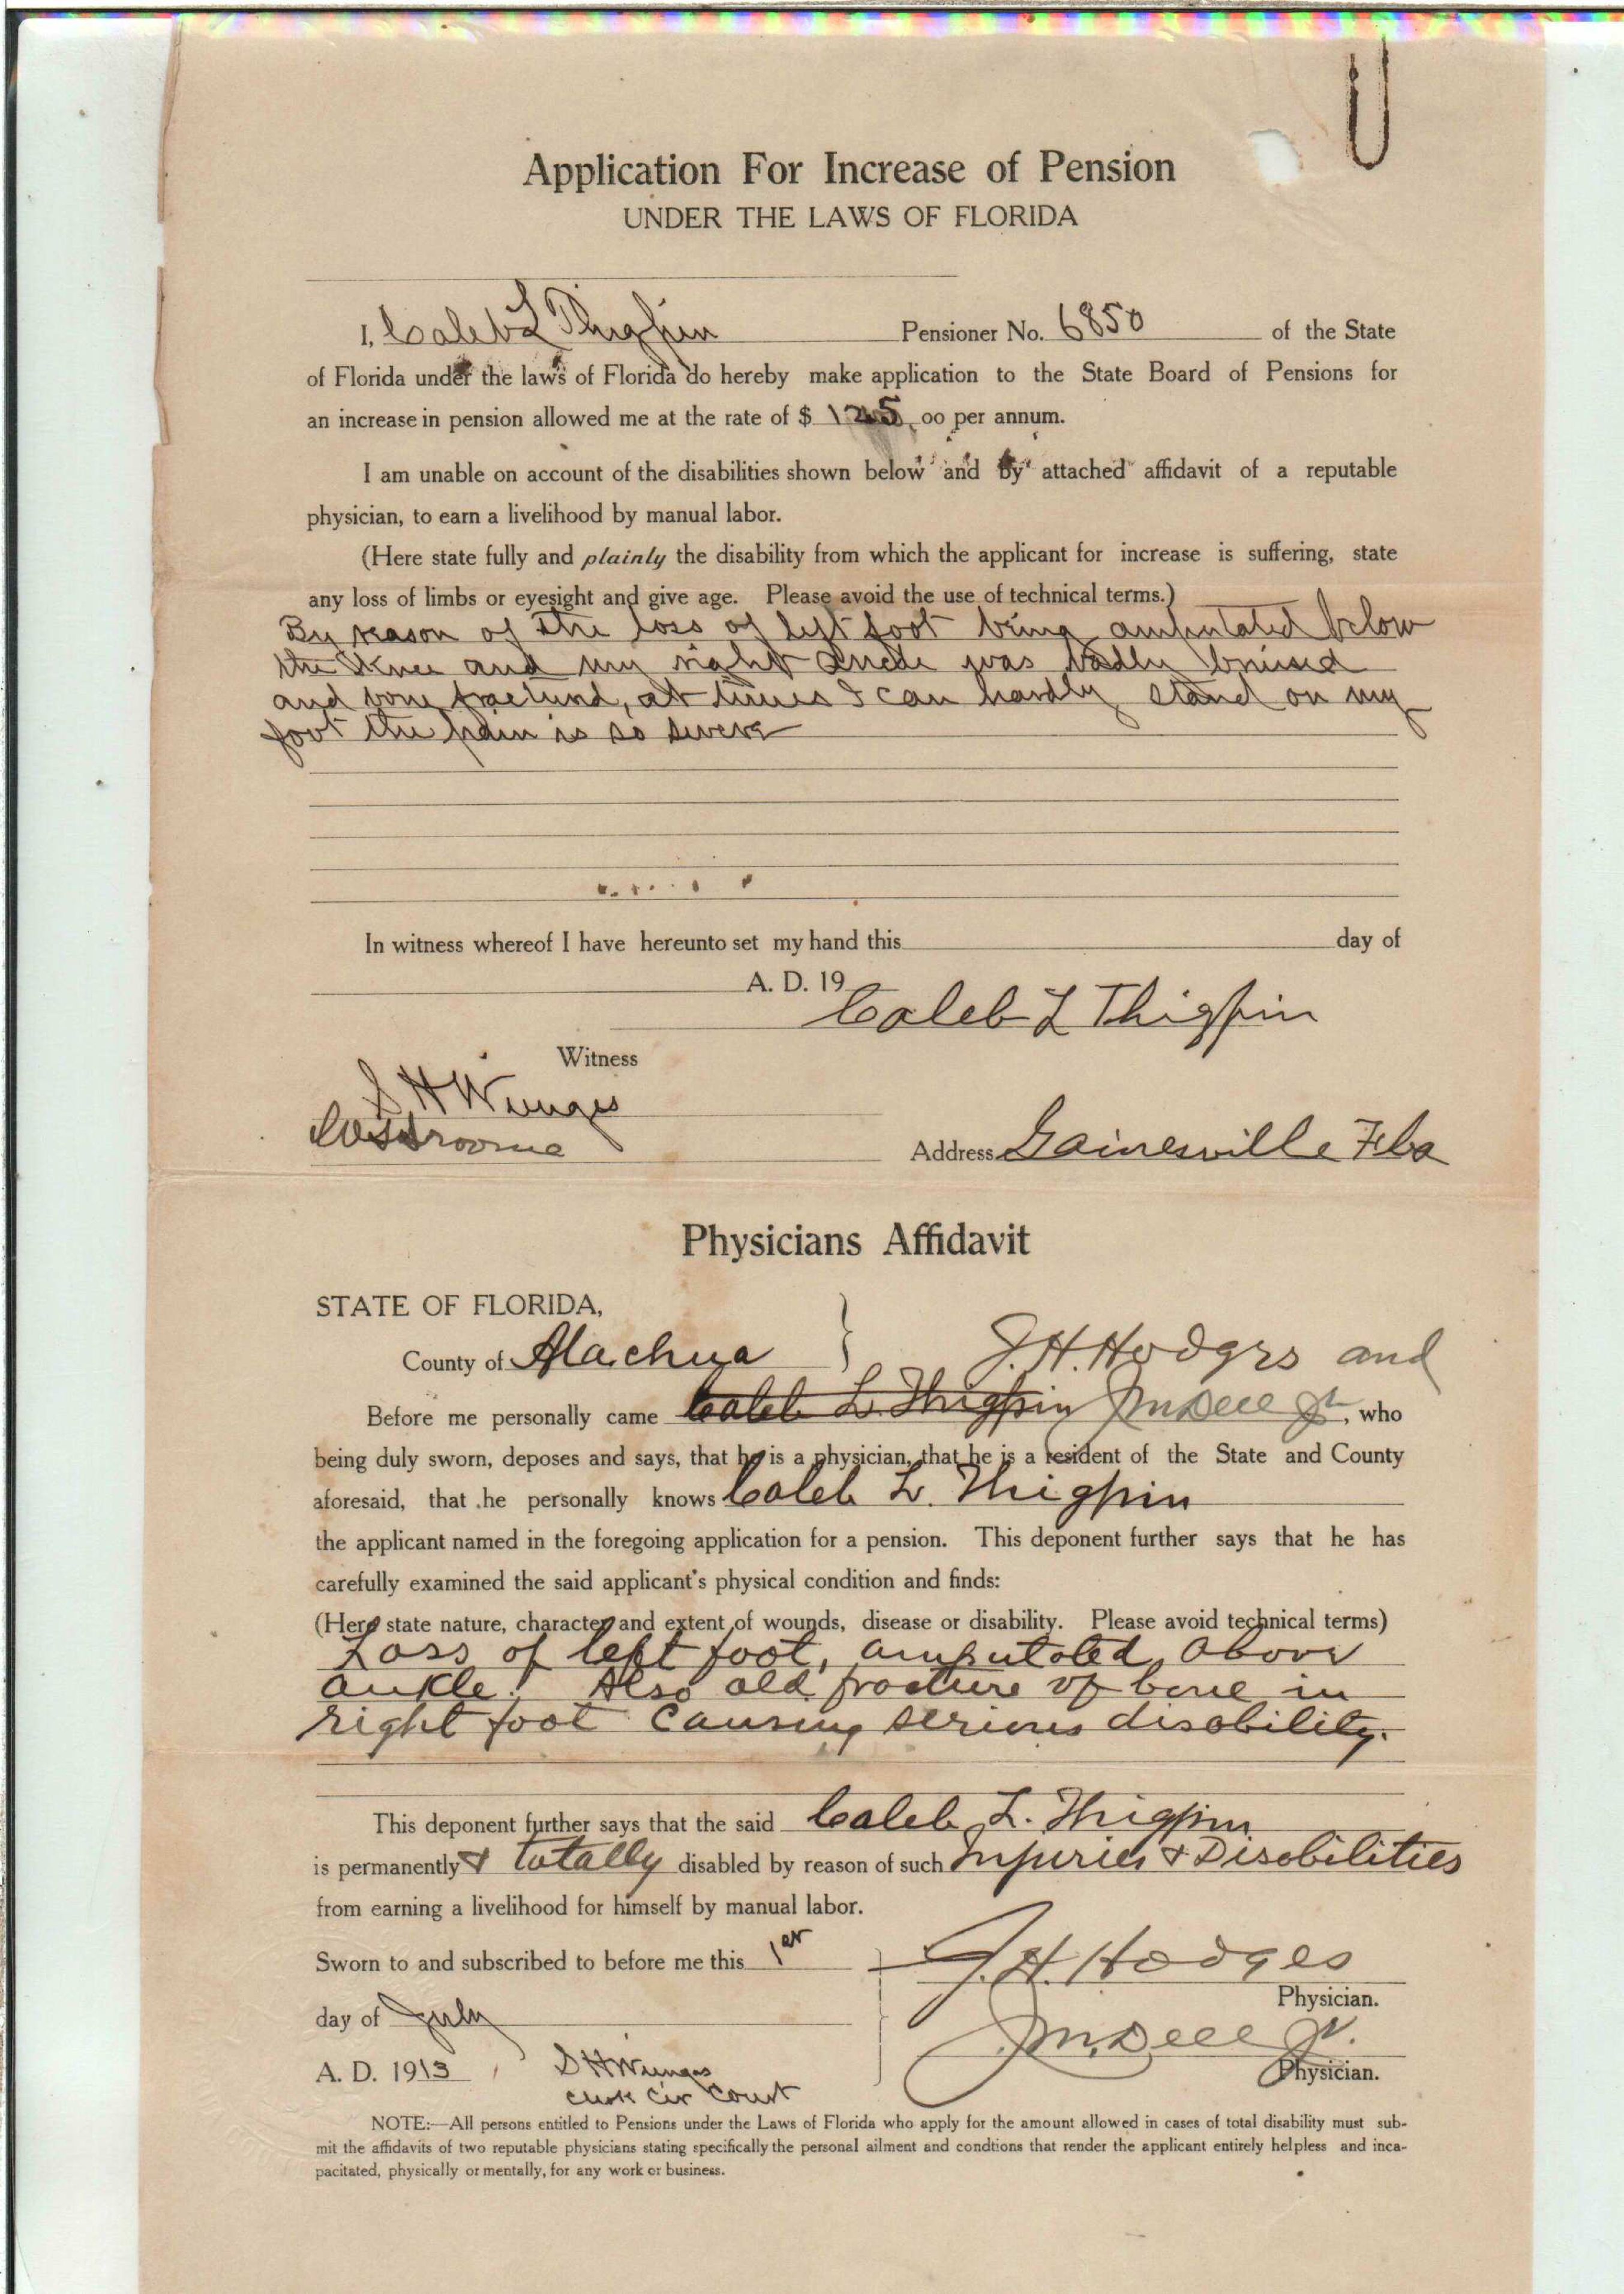 Application For Increase of Pension
UNDER THE LAWS OF FLORIDA
I, Caleb L Thigpin Pensioner No. 6850 of the State
of Florida under the laws of Florida do hereby make application to the State Board of Pensions for
an increase in pension allowed me at the rate of $ 125.00 per annum.
I am unable on account of the disabilities shown below and by attached affidavit of a reputable
physician, to earn a livelihood by manual labor.
(Here state fully and plainly the disability from which the applicant for increase is suffering, state
any loss of limbs or eyesight and give age. Please avoid the use of technical terms.)
By reason of the loss of left foot being amputated below
the Knee and my right was badly bruised
and bone , at times I can hardly stand on my
foot the pain is so severe
In witness whereof I have hereunto set my hand this day of
A. D. 19
Caleb L Thigpin
Witness
S H Wienges
Address Gainesville Fla
Physicians Affidavit
STATE OF FLORIDA,
County of Alachua } J. H. Hodges and
Before me personally came Caleb L. Thigpin J M Dell Jr, who
being duly sworn, deposes and says, that he is a physician, that he is a resident of the State and County
aforesaid, that he personally knows Caleb L. Thigpin
the applicant named in the foregoing application for a pension. This deponent further says that he has
carefully examined the said applicant's physical condition and finds:
(Here state nature, character and extent of wounds, disease or disability. Please avoid technical terms)
Loss of left foot, amputated above
ankle! Also old fracture of bone in
right foot causing serious disability.
This deponent further says that the said Caleb L. Thigpin
is permanently & totally disabled by reason of such Injuries & Disabilities
from earning a livelihood for himself by manual labor.
Sworn to and subscribed to before me this 1st
J. H. Hodges
Physician.
day of July
J. M. Dell Jr.
Physician.
A. D. 1913
S H Wienges
Clerk Cir Court
NOTE:—All persons entitled to Pensions under the Laws of Florida who apply for the amount allowed in cases of total disability must sub-
mit the affidavits of two reputable physicians stating specifically the personal ailment and condtions that render the applicant entirely helpless and inca-
pacitated, physically or mentally, for any work or business.